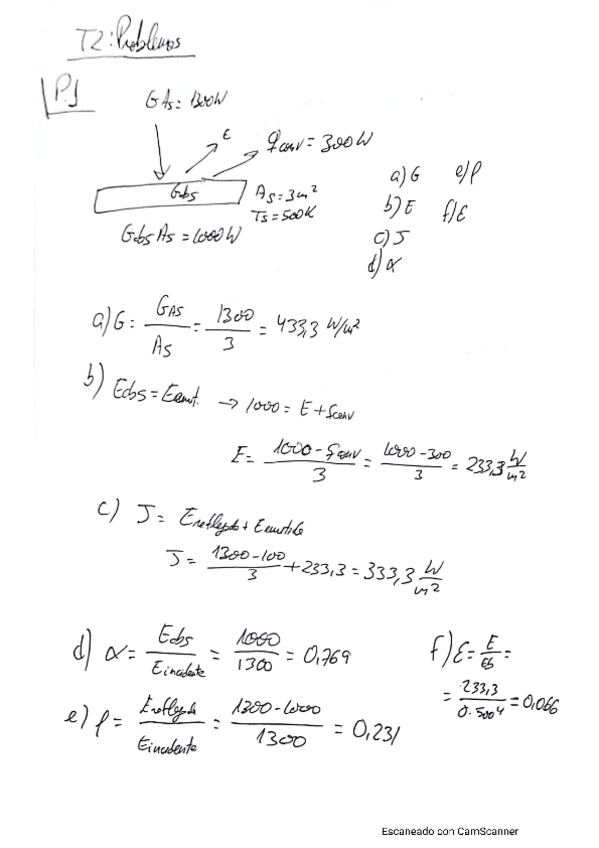 T2: Problemas
P.1
G As = 1300W
E
qconv = 300W
Gabs
As = 3m²
Ts = 500K
Gabs As = 1000W
a) G e) ρ
b) E f) ε
c) J
d) α
a) G = GAs/As = 1300/3 = 433,3 W/m²
b) Eabs = Eemit. → 1000 = E + qconv
E = (1000 - qconv)/3 = (1000 - 300)/3 = 233,3 W/m²
c) J = Ereflejada + Eemitida
J = (1300 - 100)/3 + 233,3 = 333,3 W/m²
d) α = Eabs/Eincidente = 1000/1300 = 0,769
e) ρ = Ereflejada/Eincidente = (1300 - 1000)/1300 = 0,231
f) ε = E/Eb =
= 233,3/σ·500⁴ = 0,066
Escaneado con CamScanner